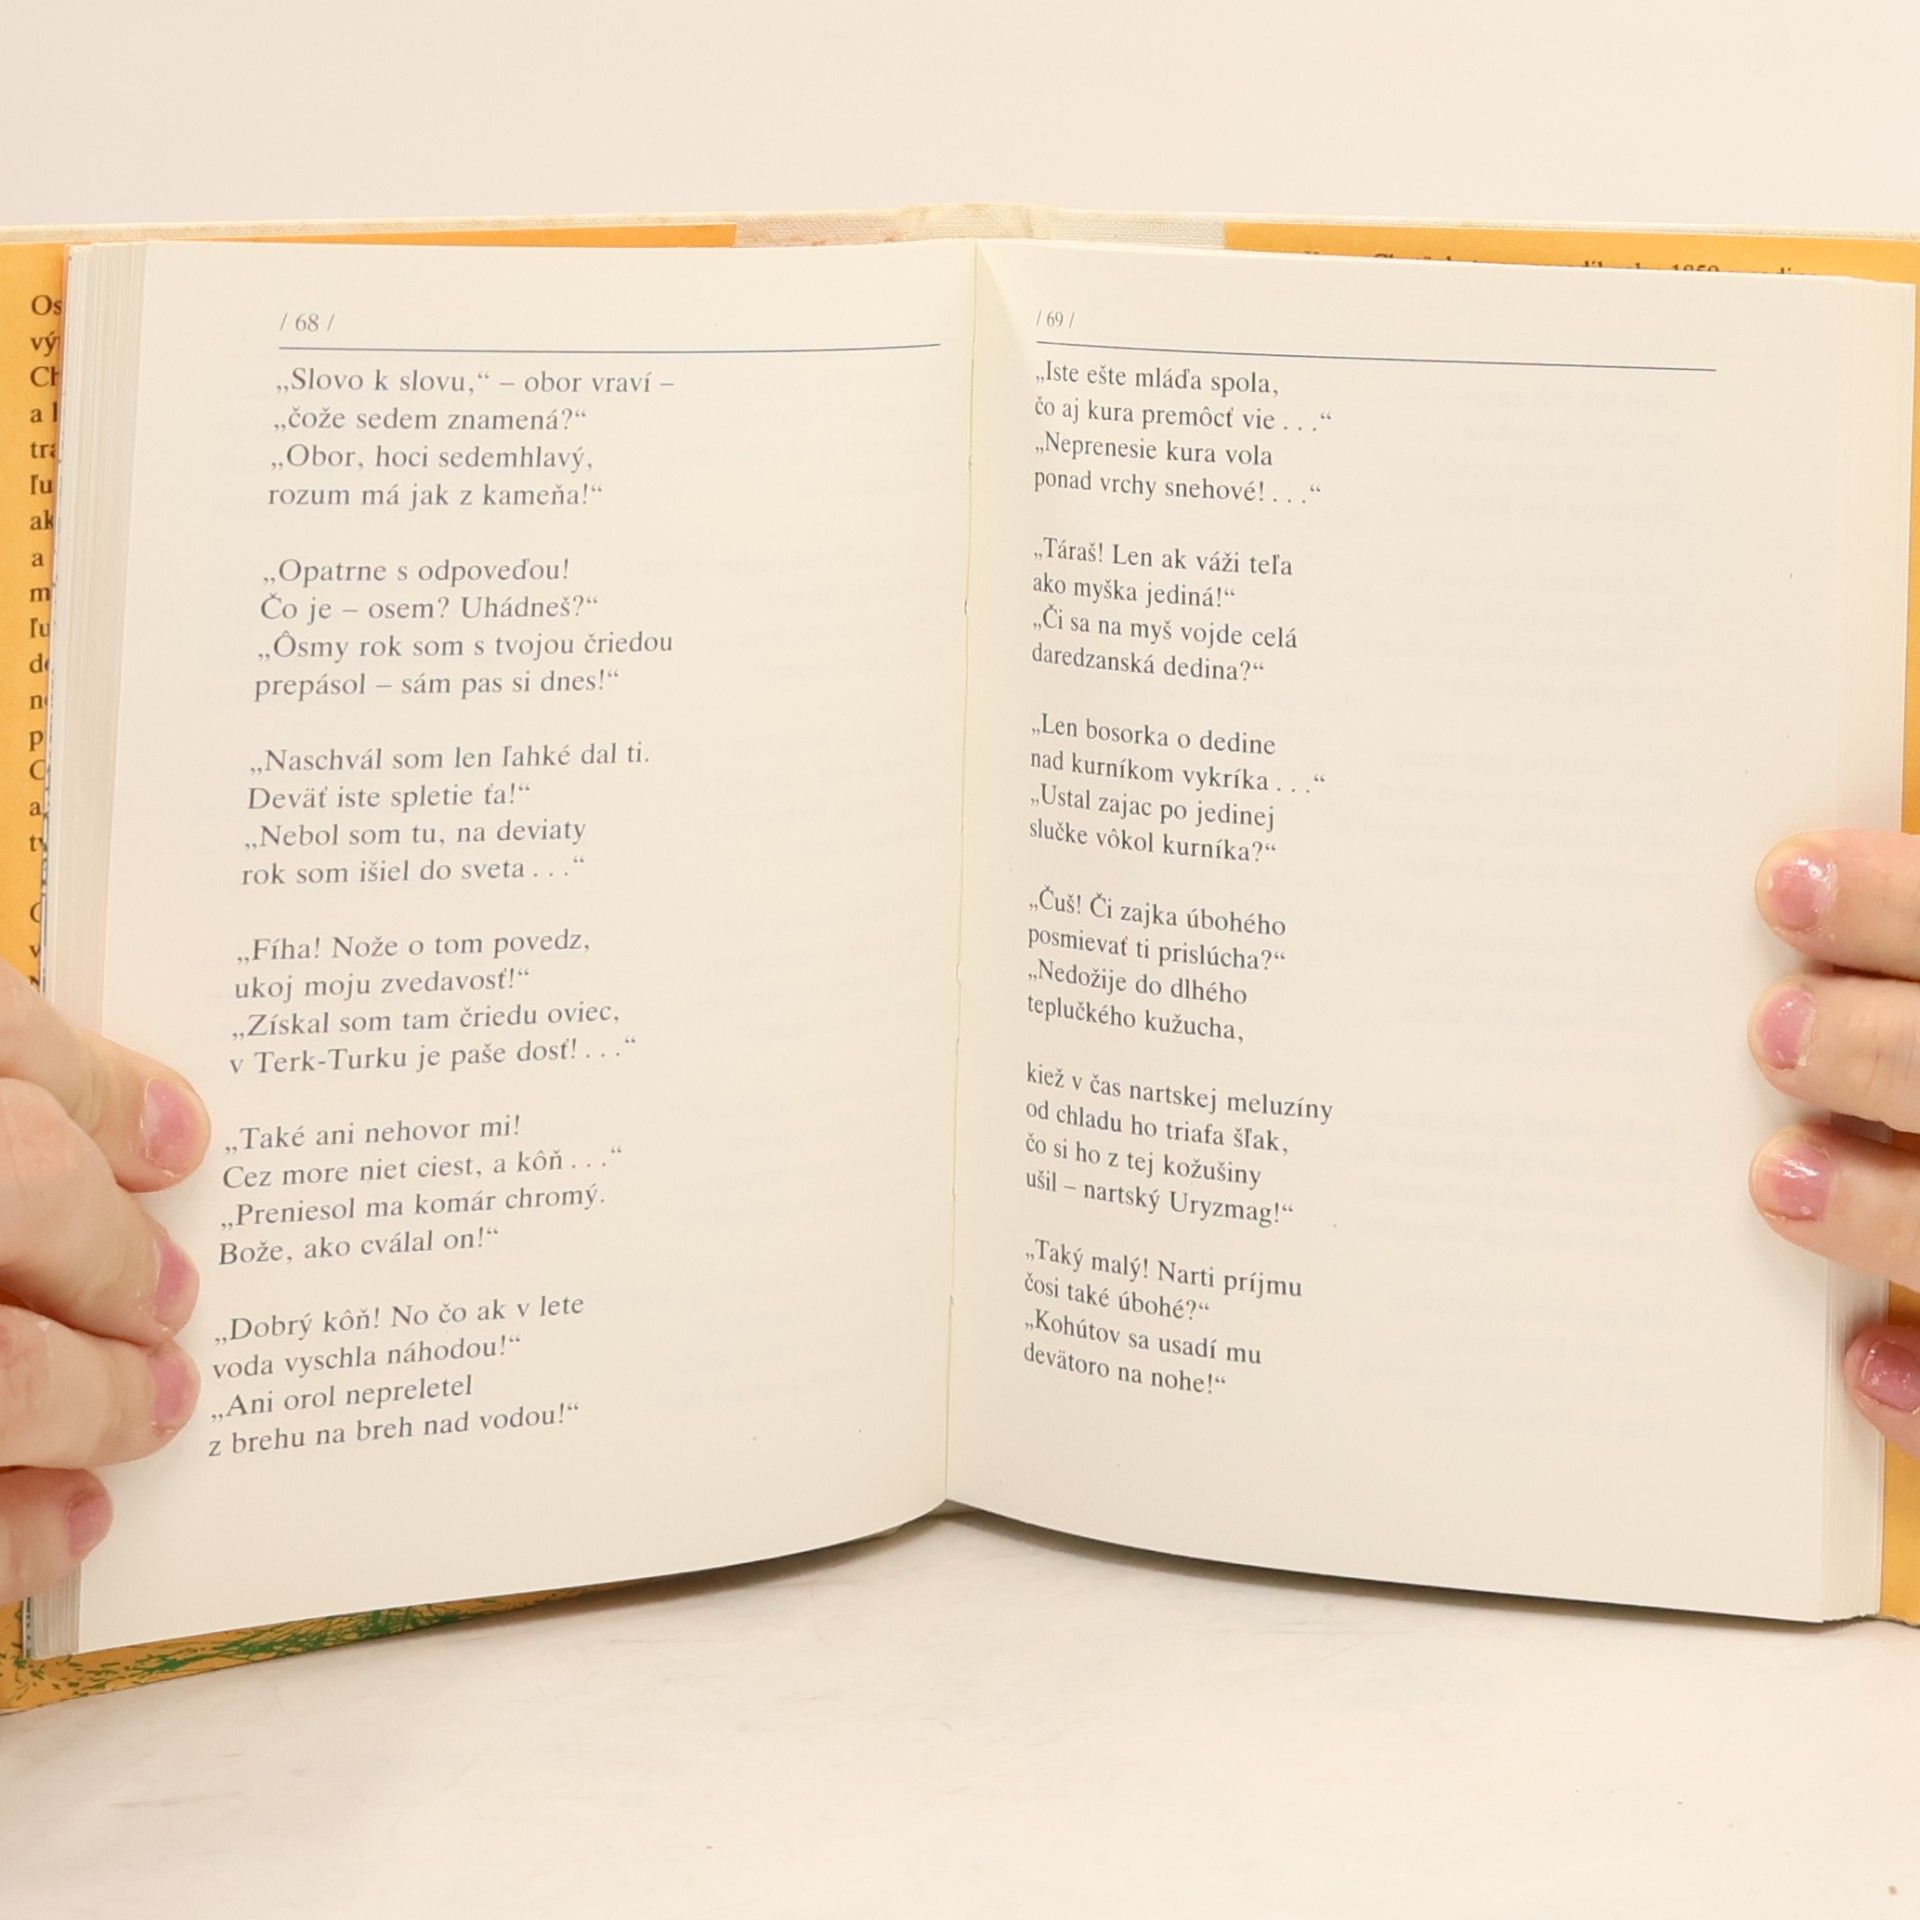 / 68 /
„Slovo k slovu,“ – obor vraví –
„čože sedem znamená?“
„Obor, hoci sedemhlavý,
rozum má jak z kameňa!“
„Opatrne s odpoveďou!
Čo je – osem? Uhádneš?“
„Ôsmy rok som s tvojou čriedou
prepásol – sám pas si dnes!“
„Naschvál som len ľahké dal ti.
Deväť iste spletie ťa!“
„Nebol som tu, na deviaty
rok som išiel do sveta . . .“
„Fíha! Nože o tom povedz,
ukoj moju zvedavosť!“
„Získal som tam čriedu oviec,
v Terk-Turku je paše dosť! . . .“
„Také ani nehovor mi!
Cez more niet ciest, a kôň . . .“
„Preniesol ma komár chromý.
Bože, ako cválal on!“
„Dobrý kôň! No čo ak v lete
voda vyschla náhodou!“
„Ani orol nepreletel
z brehu na breh nad vodou!“
/ 69 /
„Iste ešte mláďa spola,
čo aj kura premôcť vie . . .“
„Neprenesie kura vola
ponad vrchy snehové! . . .“
„Táraš! Len ak váži teľa
ako myška jediná!“
„Či sa na myš vojde celá
daredzanská dedina?“
„Len bosorka o dedine
nad kurníkom vykríka . . .“
„Ustal zajac po jedinej
slučke vôkol kurníka?“
„Čuš! Či zajka úbohého
posmievať ti prislúcha?“
„Nedožije do dlhého
teplučkého kužucha,
kiež v čas nartskej meluzíny
od chladu ho triafa šľak,
čo si ho z tej kožušiny
ušil – nartský Uryzmag!“
„Taký malý! Narti príjmu
čosi také úbohé?“
„Kohútov sa usadí mu
devätoro na nohe!“